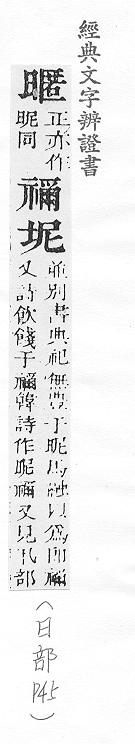 經典文字辨證書
暱正亦作
昵同
禰坭並別書典祀無豐于昵馬融以爲即禰
又詩飲餞于禰韓詩作坭禰又見示部
(日部
P45)